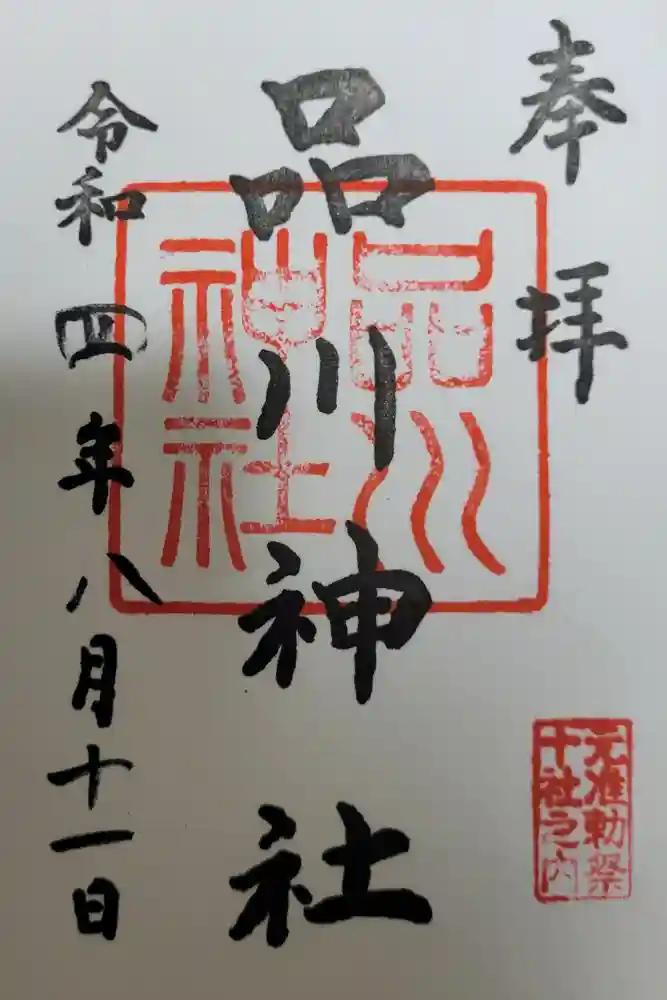 奉拝
品川神社
品川神社
令和四年八月十一日
元准勅祭
十社之内